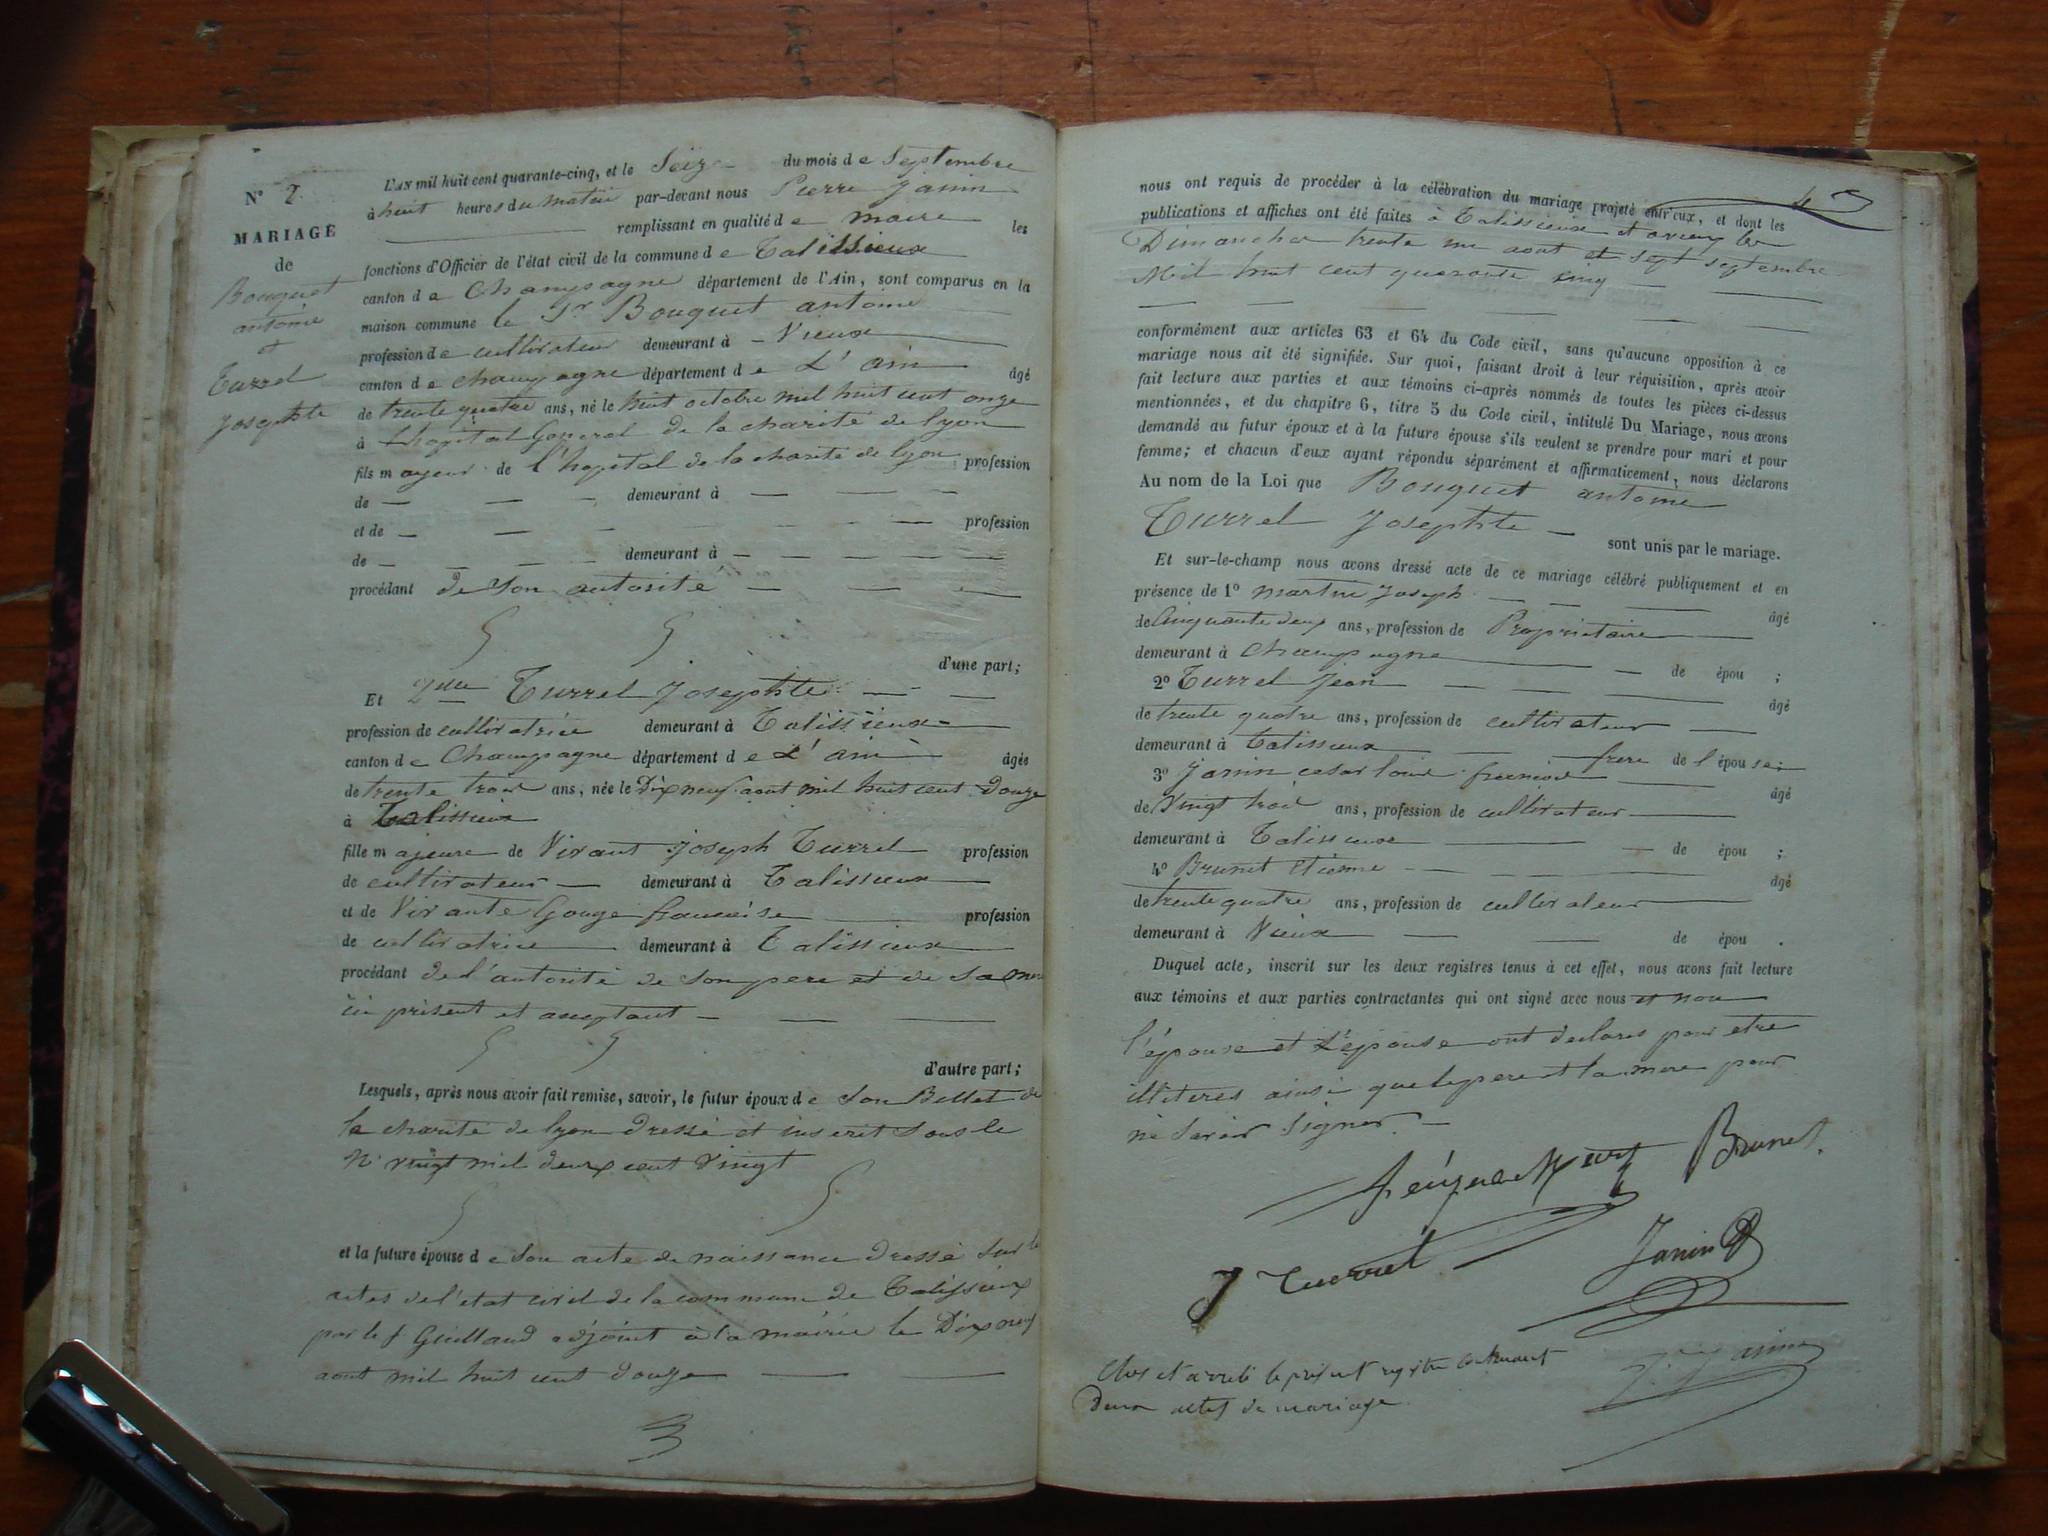 N° 2
MARIAGE
de
Bouquet
antoine
et
Turrel
Josephte
L'AN mil huit cent quarante-cinq, et le Seize du mois de Septembre
à huit heures du matin par-devant nous Pierre Janin
remplissant en qualité de maire les
fonctions d'Officier de l'état civil de la commune de Talissieux
canton de Champagne département de l'Ain, sont comparus en la
maison commune le Sr Bouquet antoine
profession de cultivateur demeurant à Vieux
canton de champagne département de L'ain âgé
de trente quatre ans, né le huit octobre mil huit cent onze
à L'hopital General de la charité de lyon
fils majeur de l'hopital de la charité de lyon profession
de — demeurant à —
et de — profession
de — demeurant à —
procédant de son autorité
d'une part;
Et Turrel Josephte
profession de cultivatrice demeurant à Talissieux
canton de Champagne département de L'ain âgée
de trente trois ans, née le Dix neuf aout mil huit cent Douze
à Talissieux
fille majeure de Vivant Joseph Turrel profession
de cultivateur demeurant à Talissieux
et de Vivante Gouge francoise profession
de cultivatrice demeurant à Talissieux
procédant de l'autorité de son pere et de sa mere
ici présent et acceptant
d'autre part;
Lesquels, après nous avoir fait remise, savoir, le futur époux de Son Billet de
la charité de lyon dressé et inscrit sous le
N° vingt mil deux cent vingt
et la future épouse de Son acte de naissance dressé sur les
actes de l'etat civil de la commune de Talissieux
par le Sr Guilland adjoint à la mairie le Dix neuf
aout mil huit cent douze
nous ont requis de procéder à la célébration du mariage projeté entr'eux, et dont les
publications et affiches ont été faites à Talissieux et à vieux les
Dimanches trente un aout et sept septembre
Mil huit cent quarante cinq
conformément aux articles 63 et 64 du Code civil, sans qu'aucune opposition à ce
mariage nous ait été signifiée. Sur quoi, faisant droit à leur réquisition, après avoir
fait lecture aux parties et aux témoins ci-après nommés de toutes les pièces ci-dessus
mentionnées, et du chapitre 6, titre 5 du Code civil, intitulé Du Mariage, nous avons
demandé au futur époux et à la future épouse s'ils veulent se prendre pour mari et pour
femme; et chacun d'eux ayant répondu séparément et affirmativement, nous déclarons
Au nom de la Loi que Bouquet antoine
Turrel Josephte sont unis par le mariage.
Et sur-le-champ nous avons dressé acte de ce mariage célébré publiquement et en
présence de 1° martin Joseph âgé
de Cinquante deux ans, profession de Propriétaire
demeurant à Champagne de épou ;
2° Turrel Jean âgé
de trente quatre ans, profession de cultivateur
demeurant à Talissieux frere de l'épouse;
3° Janin cesar louis âgé
de Vingt trois ans, profession de cultivateur
demeurant à Talissieux de épou ;
4° Brunet Etienne âgé
de trente quatre ans, profession de cultivateur
demeurant à Vieux de épou .
Duquel acte, inscrit sur les deux registres tenus à cet effet, nous avons fait lecture
aux témoins et aux parties contractantes qui ont signé avec nous et non
l'épouse et L'épouse ont declarés pour etre
illiteres ainsi que le pere et la mere pour
ne savoir signer.
Brunet
J Turrel
Janin
P. Janin
Clos et arreté le present registre contenant
Deux actes de mariage